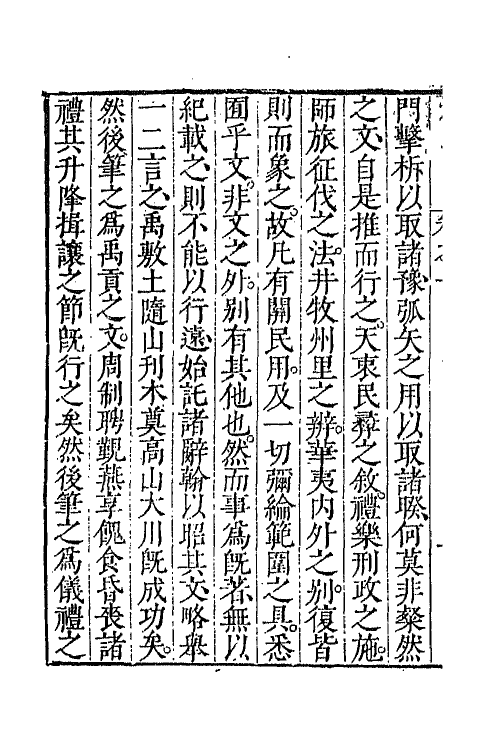 門擊柝以取諸豫弧矢之用以取諸睽何莫非粲然
之文自是推而行之天衷民彝之敘禮樂刑政之施
師旅征伐之法井牧州里之辨華夷內外之別復皆
則而象之故凡有關民用及一切彌綸範圍之具悉
囿乎文非文之外別有其他也然而事爲旣著無以
紀載之則不能以行遠始託諸辭翰以昭其文略舉
一二言之禹敷土隨山刋木奠高山大川旣成功矣
然後筆之爲禹貢之文周制聘覲燕享餽食昏喪諸
禮其升降揖讓之節旣行之矣然後筆之爲儀禮之